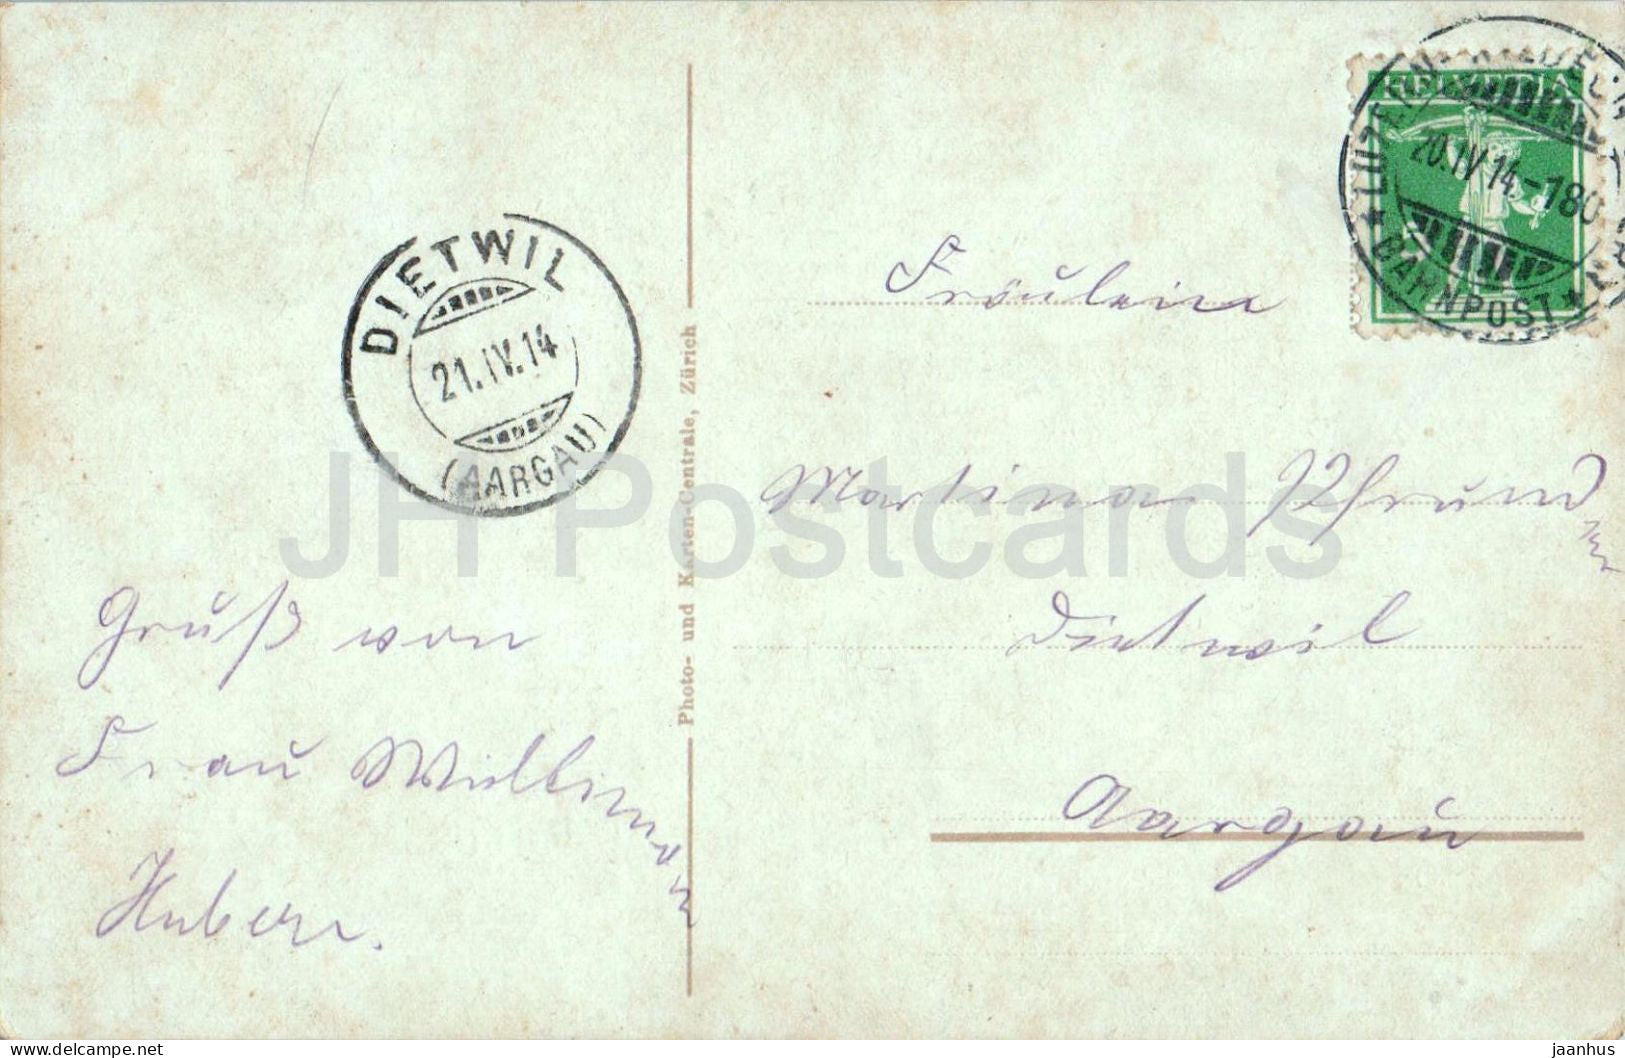 HELVETIA
20.IV.14-180
★ BAHNPOST ★
DIETWIL
21.IV.14
(AARGAU)
Photo- und Karten-Centrale, Zürich
Fräulein
Martina
Dietwil
Aargau
Gruß von
Frau
Huber.
JH Postcards
www.delcampe.net
jaanhus